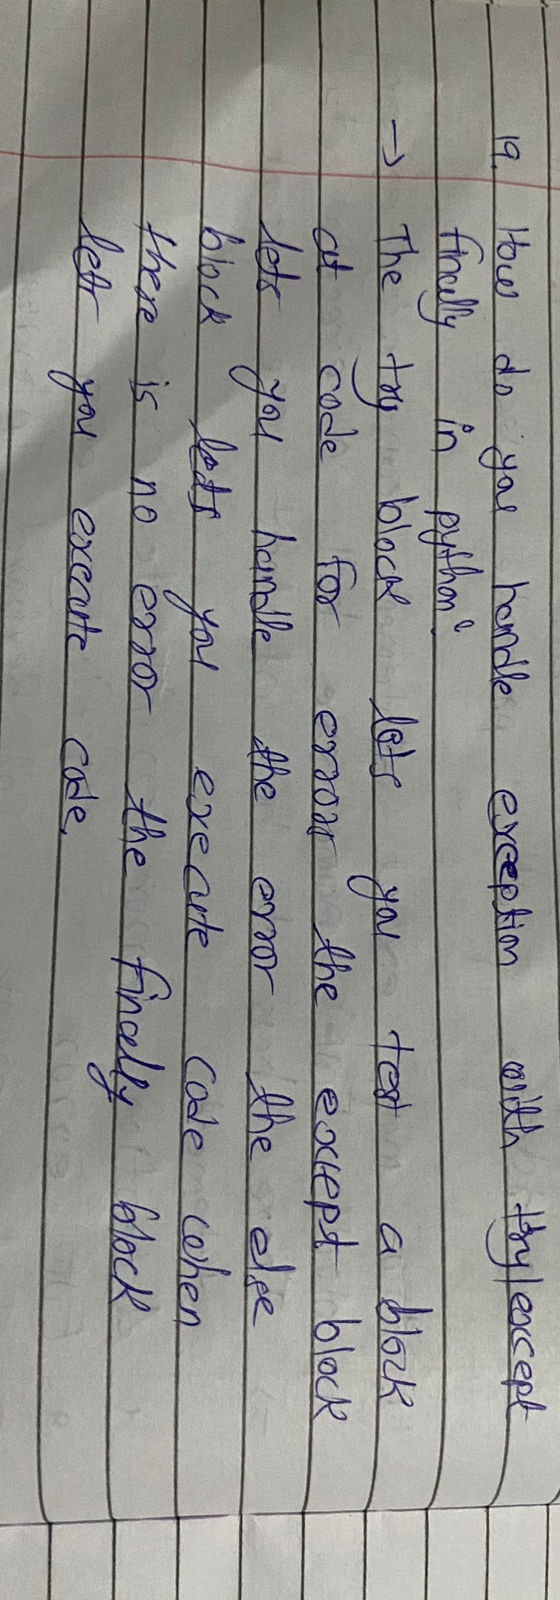 19. How do you handle exception with try/except
finally in python?
→ The try block lets you test a block
at code for error the except block
lets you handle the error the else
block lets you execute code when
there is no error the finally block
lets you execute code.